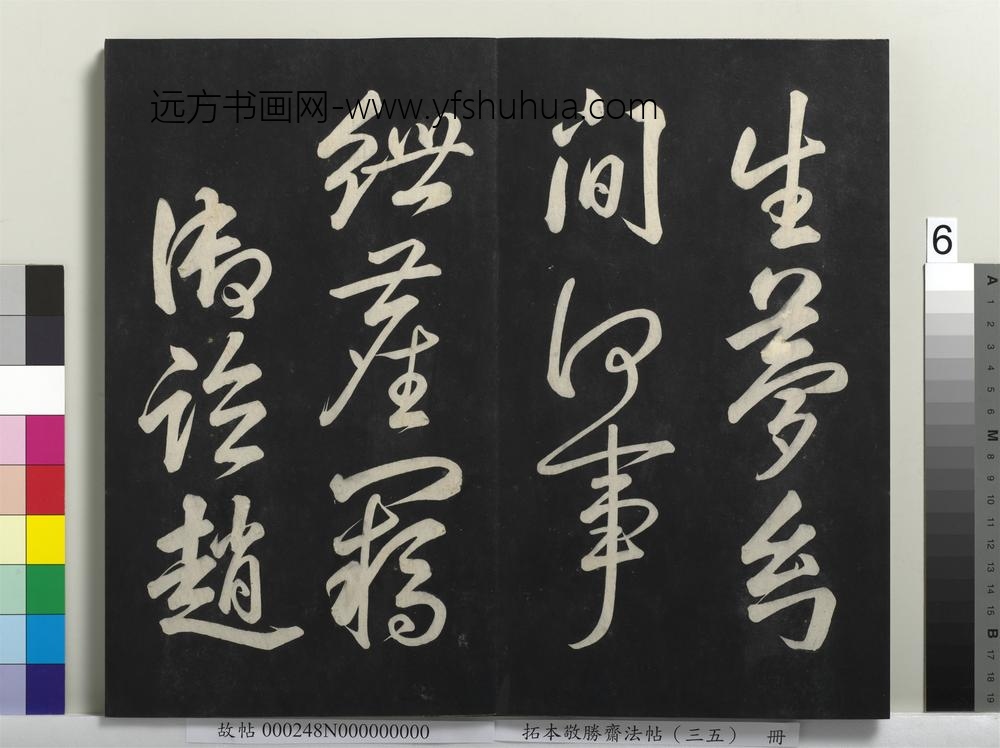 远方书画网-www.yfshuhua.com
生夢幻
間何事
一
御趙
6
A 1 2 3 4 5 6 M 8 9 10 11 12 13 14 15 B 17 18 19
故帖 000248N000000000
拓本敬勝齋法帖（三五） 冊